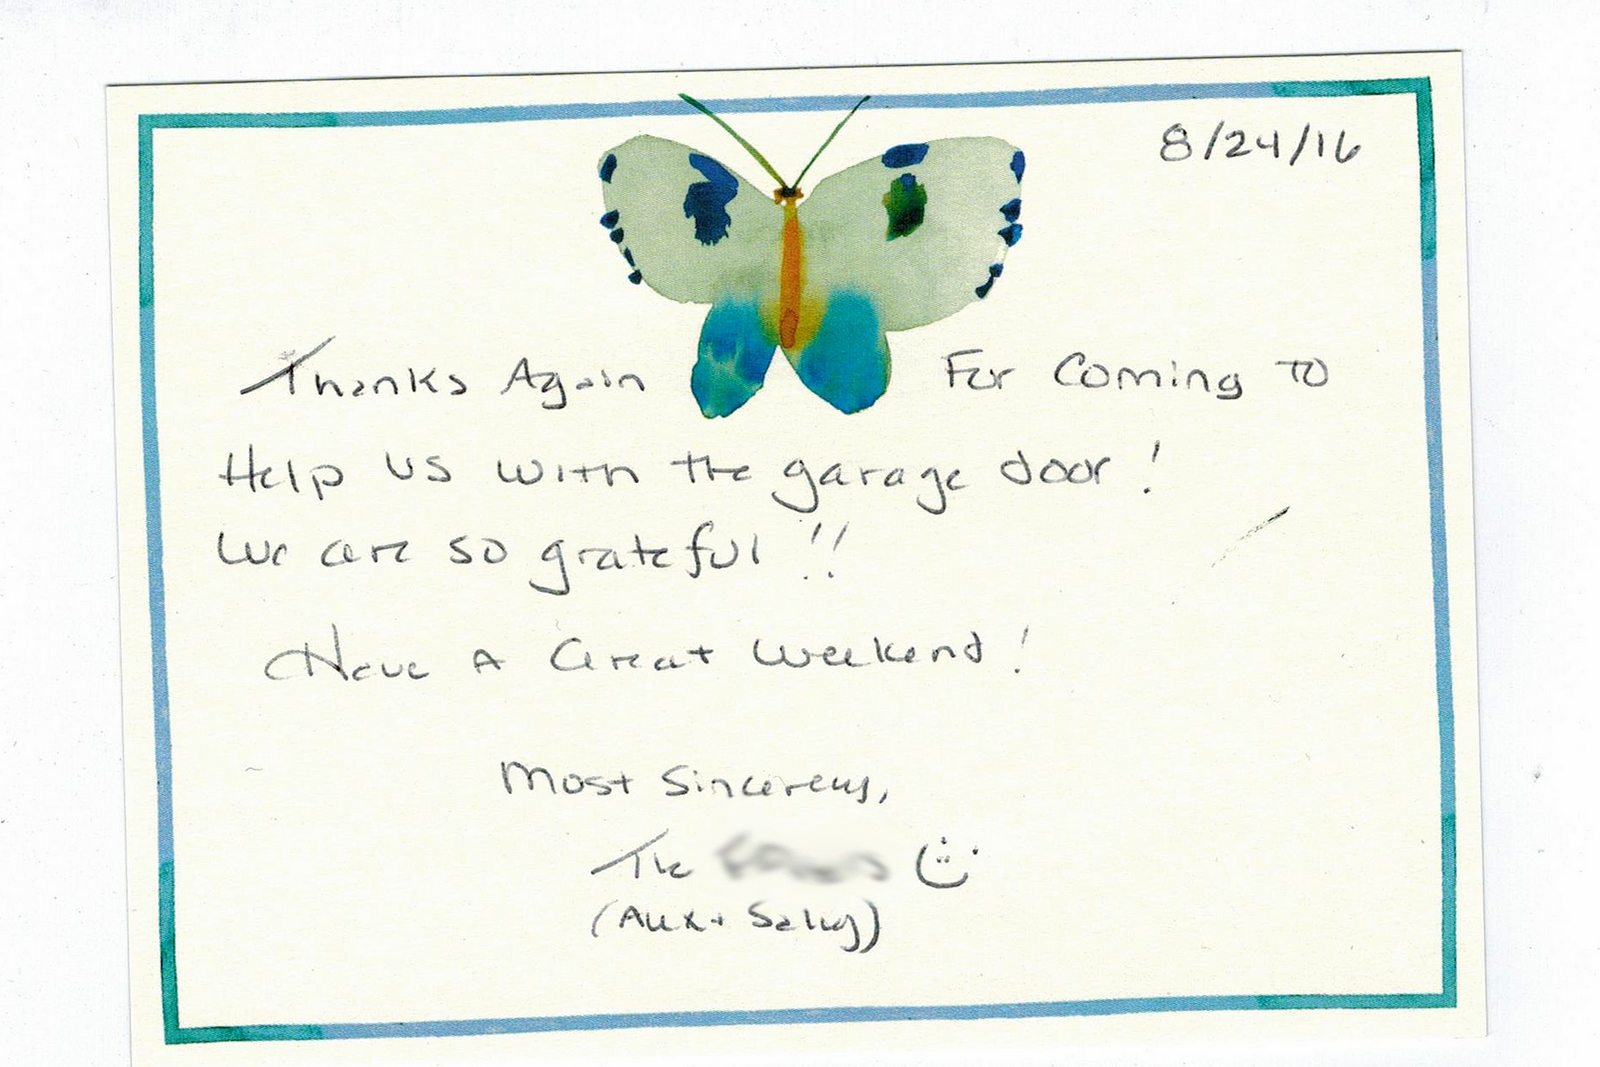 8/24/16
Thanks Again For Coming To
Help us with the garage door!
We are so grateful!!
Have A Great Weekend!
Most Sincerely,
The
(Alex + Sally)